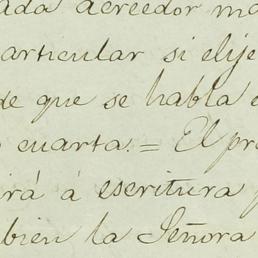 ada acreedor ma
articular si elije
de que se habla e
cuarta. = El pro
irá á escritura
bien la Señora